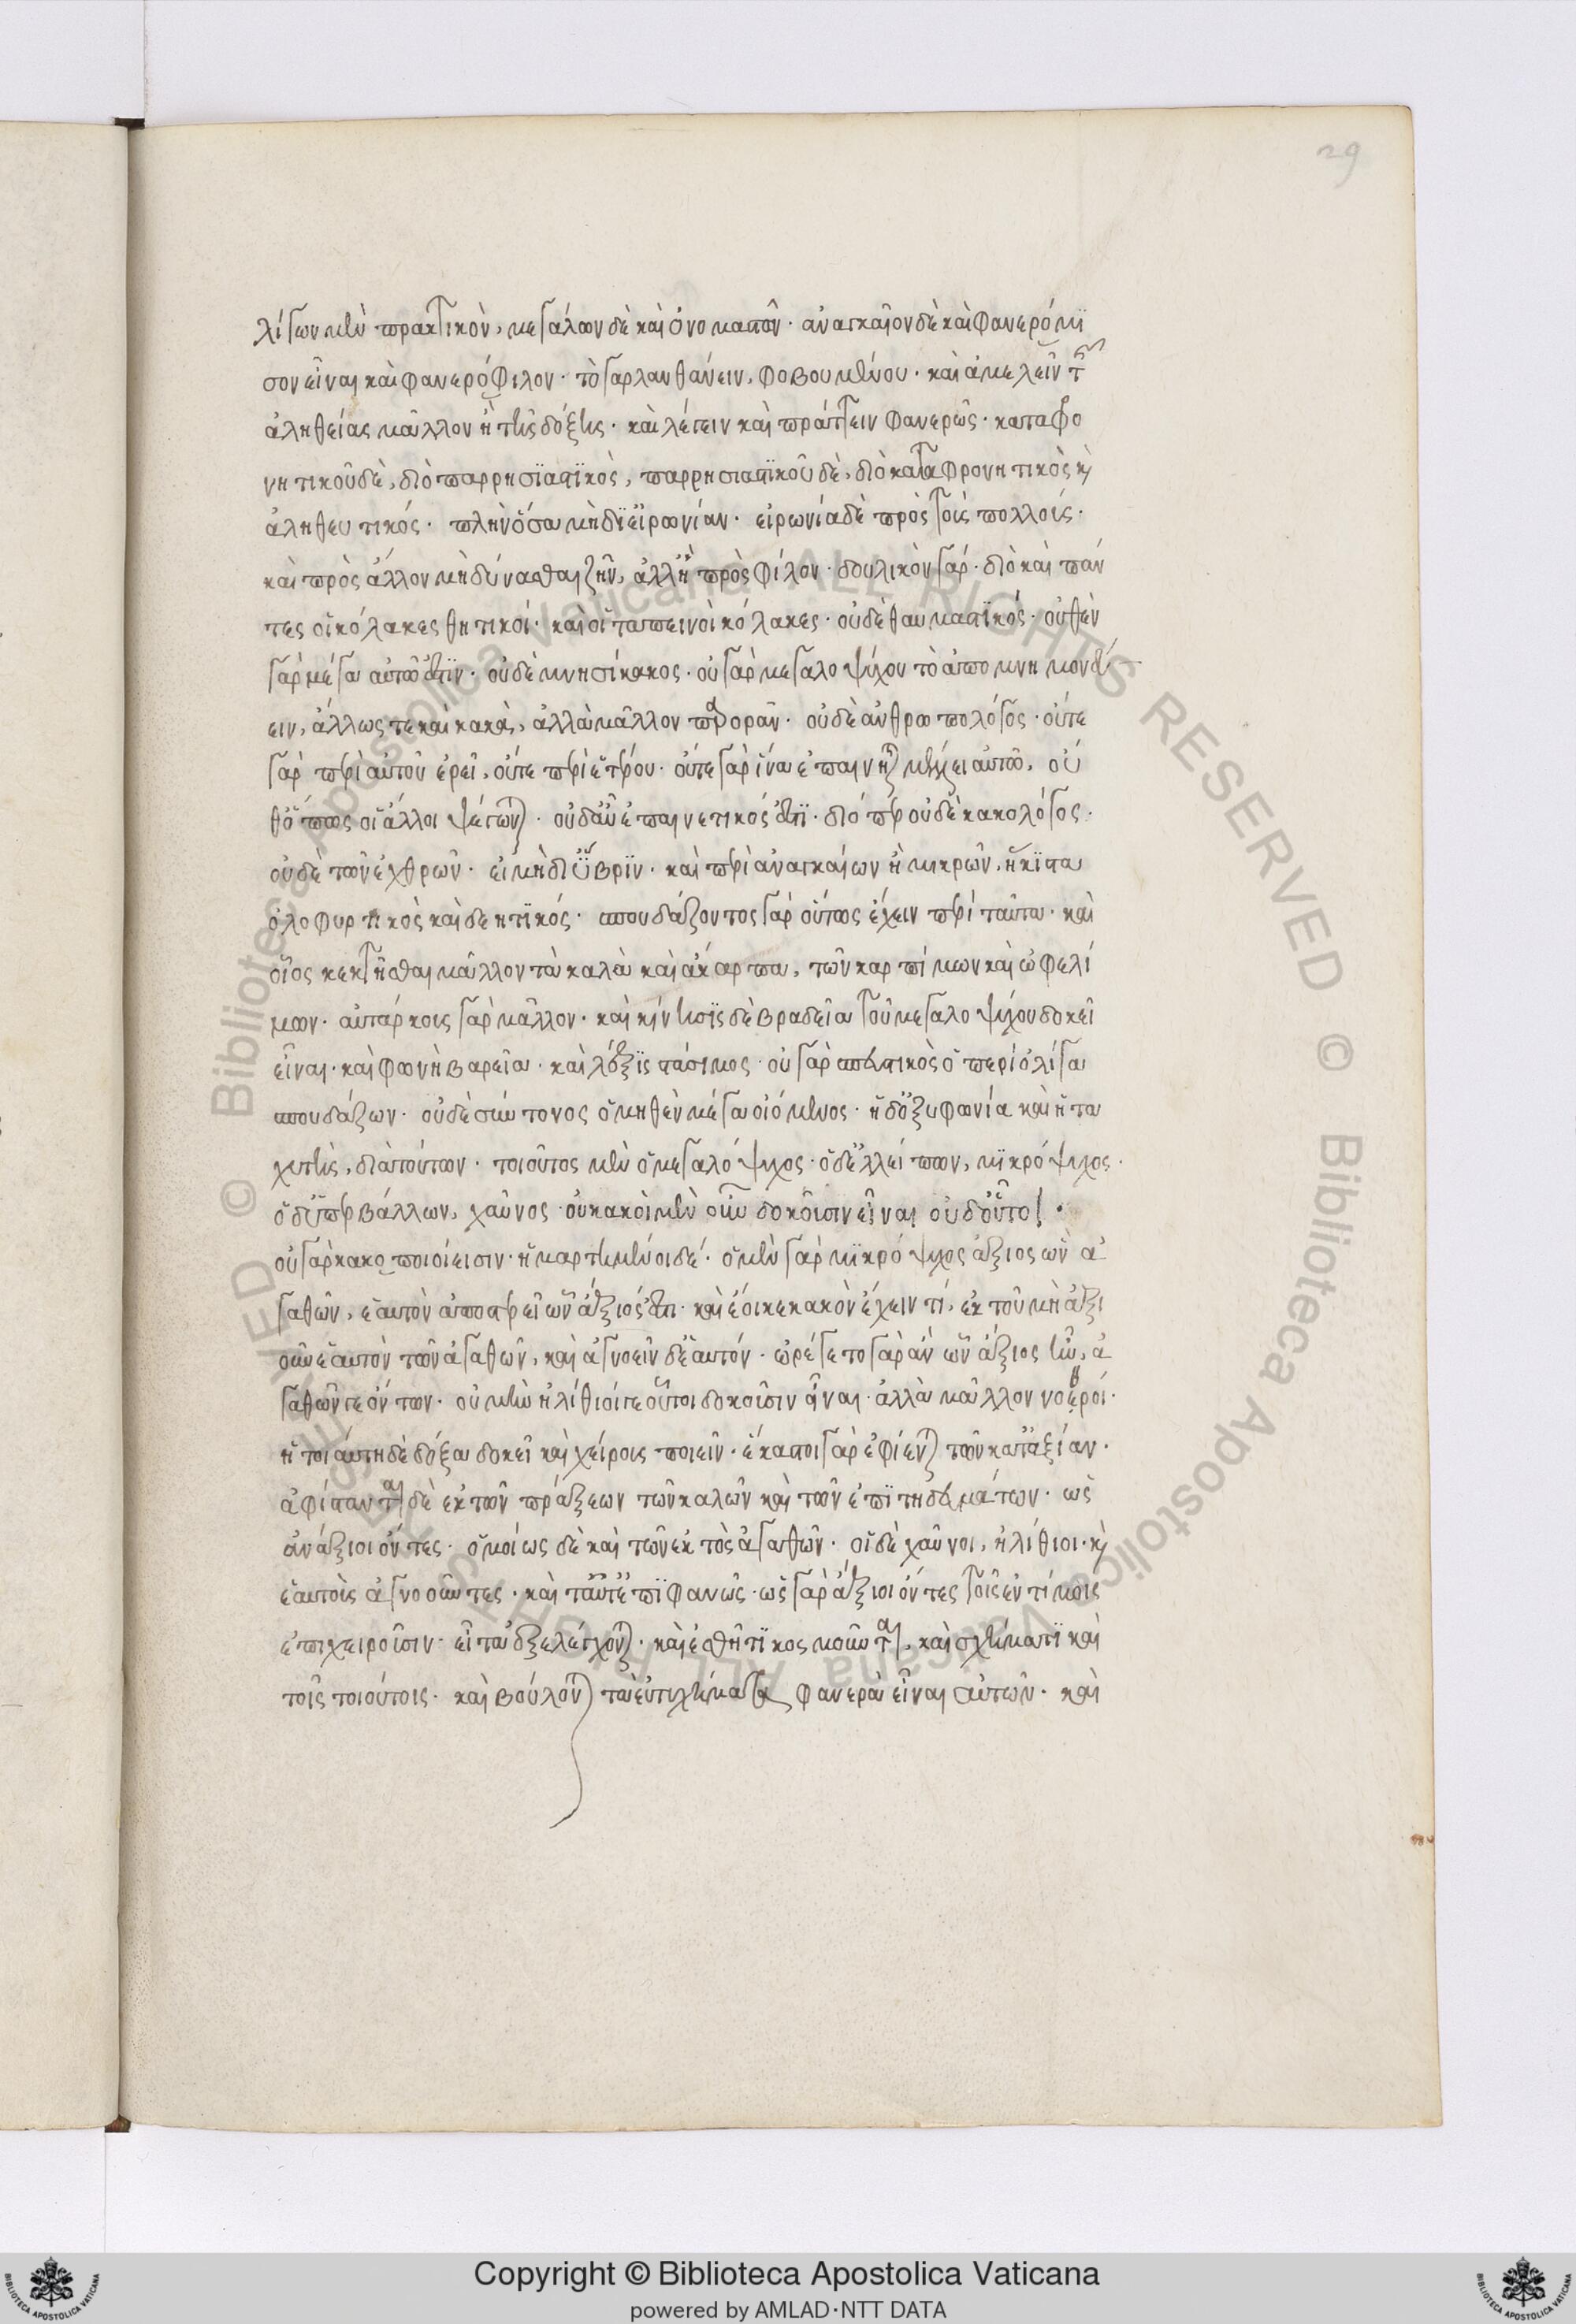 29
λίγων μὲν πρακτικὸν, μεγάλων δὲ καὶ ὀνομαστῶν· ἀναγκαῖον δὲ καὶ φανερόμι
σον εἶναι καὶ φανερόφιλον· τὸ γὰρ λανθάνειν, φοβουμένου· καὶ ἀμελεῖν τῆς
ἀληθείας μᾶλλον ἢ τῆς δόξης· καὶ λέγειν καὶ πράττειν φανερῶς· καταφρο
νητικοῦ δὲ, διὸ παρρησϊαστϊκὸς, παρρησιαστϊκοῦ δὲ, διὸ καταφρονητικὸς κ
ἀληθευτικός· πλὴν ὅσα μὴ δϊ εἰρωνίαν· εἰρωνία δὲ πρὸς τοὺς πολλούς·
καὶ πρὸς ἄλλον μὴ δύνασθαι ζῆν, ἀλλ ἢ πρὸς φίλον· δουλικὸν γάρ· διὸ καὶ πάν
τες οἱ κόλακες θητικοί· καὶ οἱ ταπεινοὶ κόλακες· οὐδὲ θαυμαστϊκός· οὐθὲν
γὰρ μέγα αὐτῶ ἐστϊν· οὐδὲ μνησίκακος· οὐ γὰρ μεγαλοψύχου τὸ ἀπομνημονεύ
ειν, ἄλλως τε καὶ κακὰ, ἀλλὰ μᾶλλον παρορᾶν· οὐδὲ ἀνθρωπολόγος· οὔτε
γὰρ περὶ αὑτοῦ ἐρεῖ, οὔτε περὶ ἑτέρου· οὔτε γὰρ ἵνα ἐπαινῆται μέλει αὐτῶ, οὐ
θ ὅπως οἱ ἄλλοι ψέγωνται· οὐδ αὖ ἐπαινετικός ἐστϊ· διόπερ οὐδὲ κακολόγος·
οὐδὲ τῶν ἐχθρῶν· εἰ μὴ δι ὕβρϊν· καὶ περὶ ἀναγκαίων ἢ μικρῶν, ἥκϊστα
ὀλοφυρτικὸς καὶ δεητϊκός· σπουδάζοντος γὰρ οὕτως ἔχειν περὶ ταῦτα· καὶ
οἷος κεκτῆσθαι μᾶλλον τὰ καλὰ καὶ ἄκαρπα, τῶν καρπίμων καὶ ὠφελί
μων· αὐτάρκους γὰρ μᾶλλον· καὶ κίνησϊς δὲ βραδεῖα τοῦ μεγαλοψύχου δοκεῖ
εἶναι· καὶ φωνὴ βαρεῖα· καὶ λέξϊς στάσιμος· οὐ γὰρ σπευστικὸς ὁ περὶ ὀλίγα
σπουδάζων· οὐδὲ σύντονος ὁ μηθὲν μέγα οἰόμενος· ἡ δ ὀξυφωνία καὶ ἡ τα
χυτὴς, διὰ τούτων· τοιοῦτος μὲν ὁ μεγαλόψυχος· ὁ δ ἐλλείπων, μϊκρόψυχος·
ὁ δ ὑπερβάλλων, χαῦνος· οὐ κακοὶ μὲν οὖν δοκοῦσιν εἶναι οὐδ οὗτοι·
οὐ γὰρ κακοποιοί εισιν· ἡμαρτημένοι δέ· ὁ μὲν γὰρ μϊκρόψυχος ἄξιος ὢν ἀ
γαθῶν, ἑαυτὸν ἀποστερεῖ ὧν ἄξιός ἐστι· καὶ ἔοικε κακὸν ἔχειν τί, ἐκ τοῦ μὴ ἀξι
οῦν ἑαυτὸν τῶν ἀγαθῶν, καὶ ἀγνοεῖν δ ἑαυτόν· ὠρέγετο γὰρ ἂν ὧν ἄξιος ἦν, ἀ
γαθῶν γε ὄντων· οὐ μὴν ἠλίθιοί γε οὗτοι δοκοῦσιν εἶναι· ἀλλὰ μᾶλλον νοεροί·
ἡ τοιαύτη δὲ δόξα δοκεῖ καὶ χείρους ποιεῖν· ἕκαστοι γὰρ ἐφίενται τῶν κατ ἀξίαν·
ἀφίστανται δὲ ἐκ τῶν πράξεων τῶν καλῶν καὶ τῶν ἐπϊτηδευμάτων· ὡς
ἀνάξιοι ὄντες· ὁμοίως δὲ καὶ τῶν ἐκτὸς ἀγαθῶν· οἱ δὲ χαῦνοι, ἠλίθιοι· κ
ἑαυτοὺς ἀγνοοῦντες· καὶ ταῦτ ἐπϊφανῶς· ὡς γὰρ ἄξιοι ὄντες τοῖς ἐντίμοις
ἐπιχειροῦσιν· εἶτα ἐξελέγχονται· καὶ ἐσθῆτϊ κοσμοῦνται, καὶ σχήματϊ καὶ
τοῖς τοιούτοις· καὶ βούλονται τὰ εὐτυχήματα φανερὰ εἶναι αὑτῶν· καὶ
Copyright © Biblioteca Apostolica Vaticana
powered by AMLAD·NTT DATA